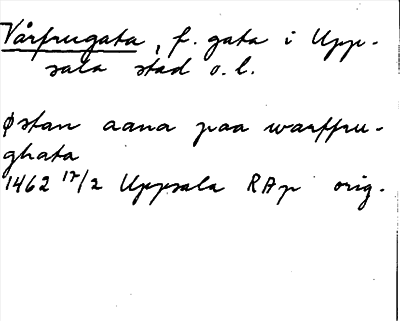 Vårfrugata, f. gata i Upp-
sala stad o. l.
Østan aana paa warffru-
ghata
1462 17/2 Uppsala RAp orig.